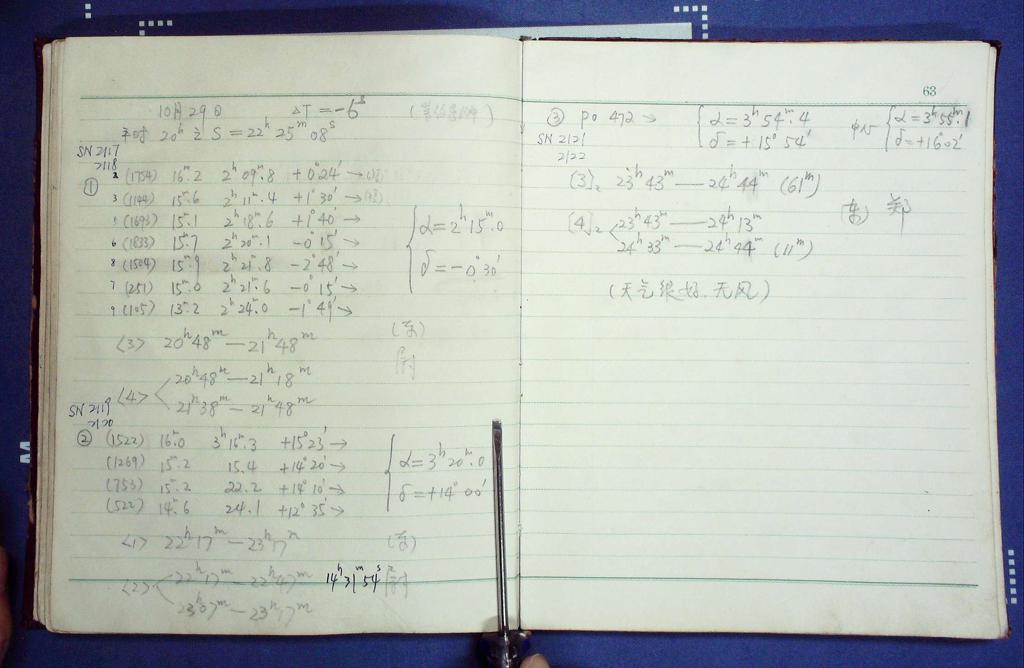 10月29日 ΔT=-6ˢ
平时 20ʰ之 S=22ʰ25ᵐ08ˢ
SN 2117
2118
①
2 (1754) 16ᵐ.2 2ʰ09ᵐ.8 +0°24′→
3 (1144) 15ᵐ.6 2ʰ11ᵐ.4 +1°30′→
5 (1693) 15ᵐ.1 2ʰ18ᵐ.6 +1°40′→
6 (1833) 15ᵐ.7 2ʰ20ᵐ.1 -0°15′→
8 (1504) 15ᵐ.9 2ʰ21ᵐ.8 -2°48′→
7 (251) 15ᵐ.0 2ʰ21ᵐ.6 -0°15′→
9 (105) 13ᵐ.2 2ʰ24ᵐ.0 -1°49′→
α=2ʰ15ᵐ.0
δ=-0°30′
<3> 20ʰ48ᵐ—21ʰ48ᵐ
<4> 20ʰ48ᵐ—21ʰ18ᵐ
21ʰ38ᵐ—21ʰ48ᵐ
SN 2119
2120
② (1522) 16ᵐ.0 3ʰ16ᵐ.3 +15°23′→
(1269) 15ᵐ.2 15.4 +14°20′→
(753) 15ᵐ.2 22.2 +14°10′→
(522) 14ᵐ.6 24.1 +12°35′→
α=3ʰ20ᵐ.0
δ=+14°00′
<1> 22ʰ17ᵐ—23ʰ17ᵐ
<2> 22ʰ17ᵐ—22ʰ47ᵐ 14ʰ31ᵐ54ˢ
23ʰ07ᵐ—23ʰ17ᵐ
63
③ PO 472→ α=3ʰ54ᵐ.4 α=3ʰ55ᵐ.1
δ=+15°54′ δ=+16°02′
SN 2121
2122
[3]₂ 23ʰ43ᵐ—24ʰ44ᵐ (61ᵐ)
[4]₂ 23ʰ43ᵐ—24ʰ13ᵐ
24ʰ33ᵐ—24ʰ44ᵐ (11ᵐ)
(东) 郑
(天气很好.无风)